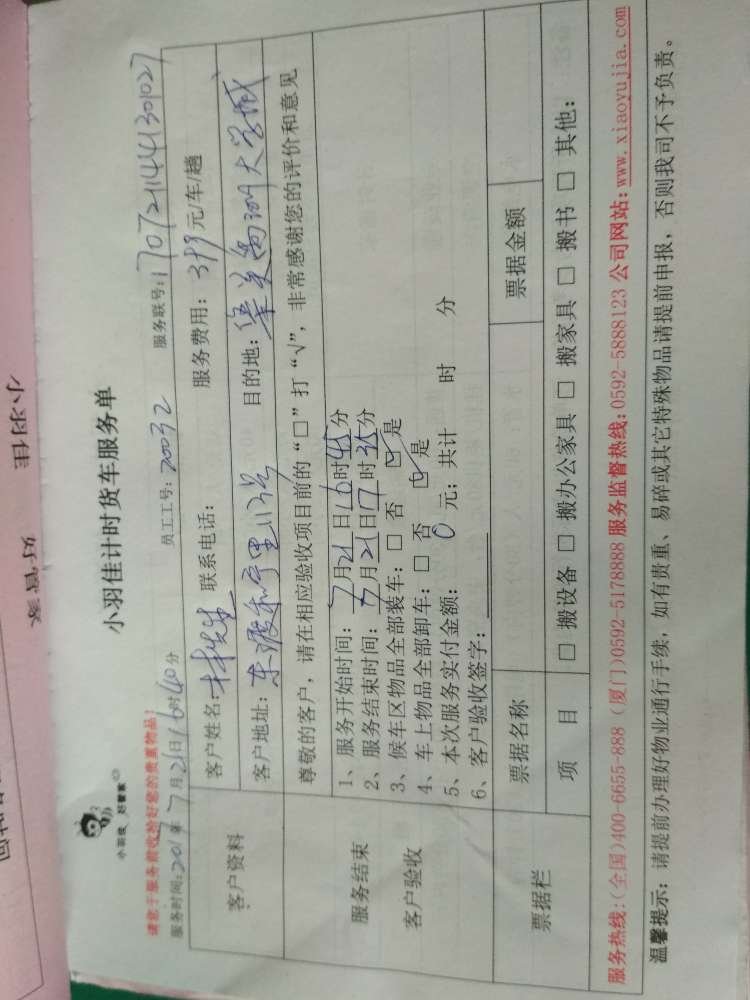 小羽佳 好管家
小羽佳 好管家
小羽佳计时货车服务单
请您于服务前收拾好您的贵重物品！
服务时间：2017年7月21日16时40分 员工工号：20032 服务联号：170721144130102７
客户资料
客户姓名：林先生 联系电话： 服务费用：399元/车/趟
客户地址：东渡和宁里113号 目的地：集美 大学城
尊敬的客户，请在相应验收项目前的“□”打“√”，非常感谢您的评价和意见
服务结束
客户验收
1、服务开始时间：7月21日16时45分
2、服务结束时间：7月21日17时35分
3、候车区物品全部装车：□ 否 ☑ 是
4、车上物品全部卸车：□ 否 ☑ 是
5、本次服务实付金额： 0 元；共计 时 分
6、客户验收签字：
票据栏
票据名称 票据金额
项 目 □ 搬设备 □ 搬办公家具 □ 搬家具 □ 搬书 □ 其他：
服务热线：(全国)400-6655-888 (厦门)0592-5178888 服务监督热线：0592-5888123 公司网站：www.xiaoyujia.com
温馨提示：请提前办理好物业通行手续，如有贵重、易碎或其它特殊物品请提前申报，否则我司不予负责。